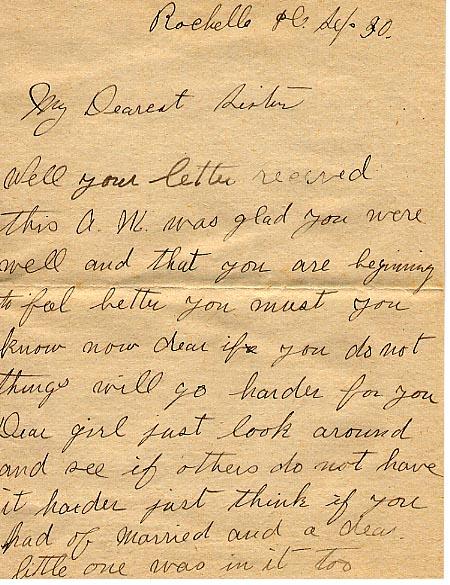 Rochelle Ills. Sep 20.
My Dearest Sister
Well your letter received
this A. M. was glad you were
well and that you are beginning
to feel better you must you
know now dear if you do not
things will go harder for you
Dear girl just look around
and see if others do not have
it harder just think if you
had of married and a dear
little one was in it too